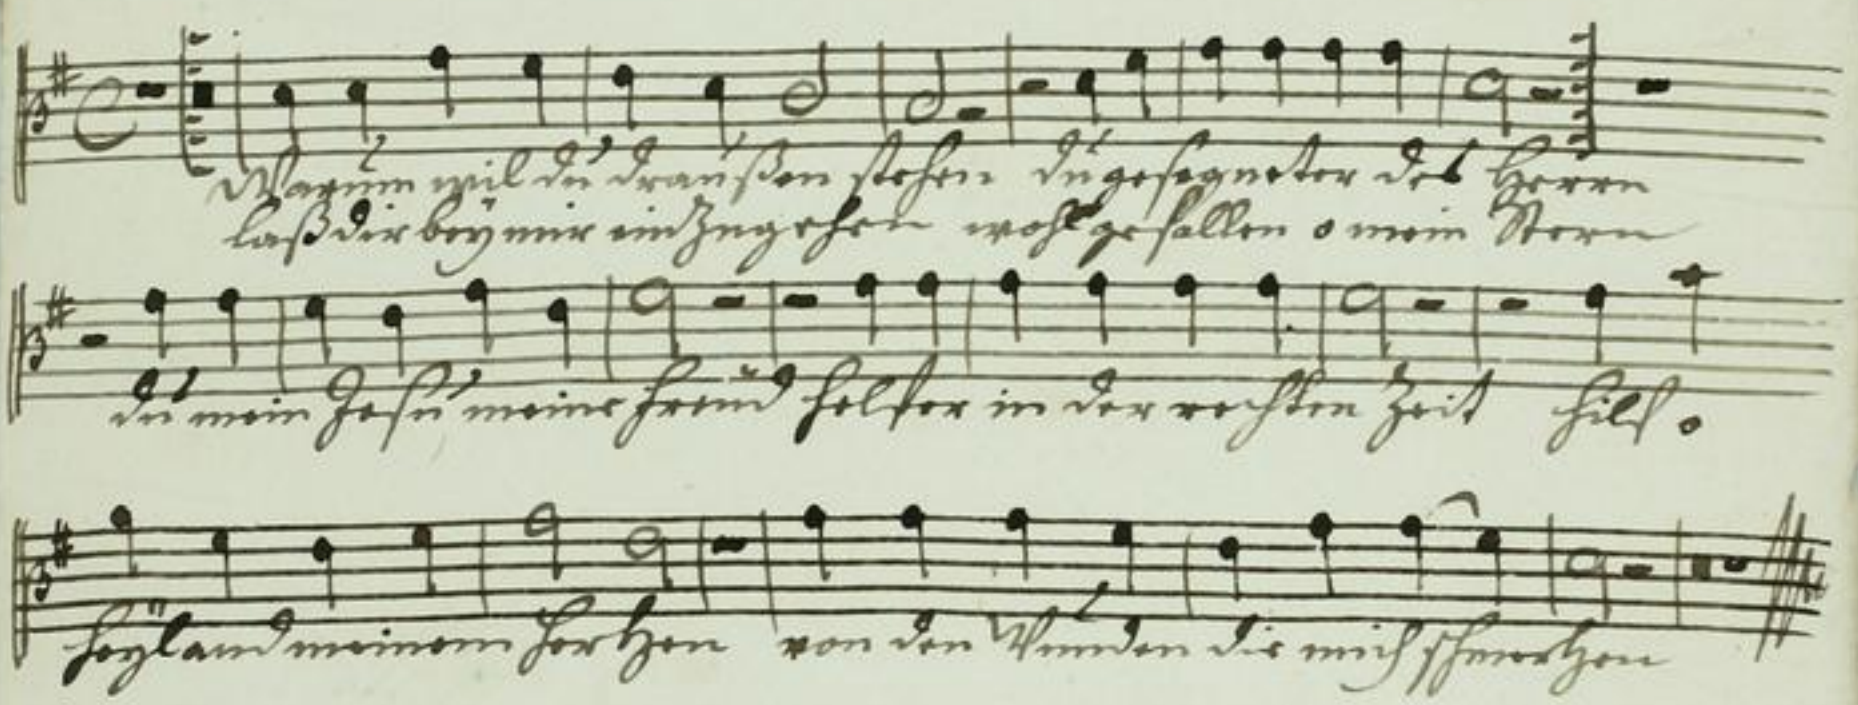 Warum wil du draußen stehen du gesegneter des Herrn
laß dir bey mir einzugehen wohl gefallen o mein Stern
du mein Jesu meine freud helfer in der rechten Zeit hilf o
heyland meinem hertzen von den Wunden die mich schmertzen